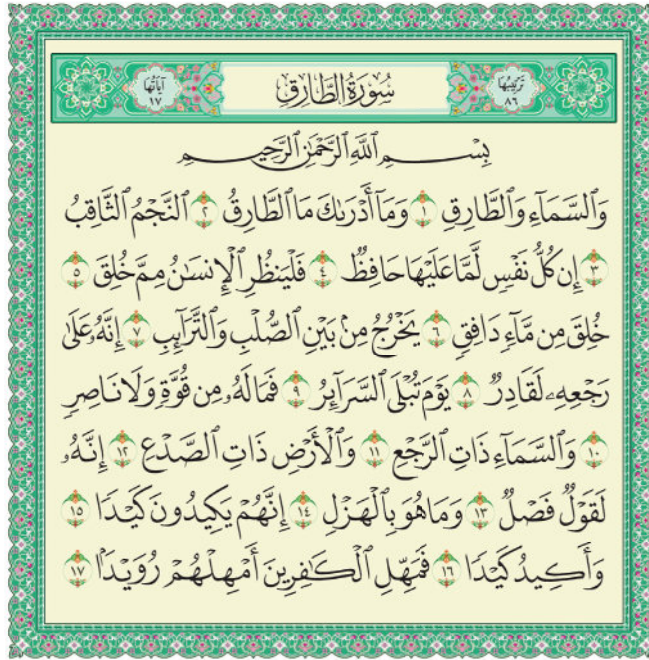 ترتيبها ٨٦ سُورَةُ الطَّارِقِ آياتُها ١٧
بِسْمِ ٱللَّهِ ٱلرَّحْمَٰنِ ٱلرَّحِيمِ
وَٱلسَّمَآءِ وَٱلطَّارِقِ ١ وَمَآ أَدْرَىٰكَ مَا ٱلطَّارِقُ ٢ ٱلنَّجْمُ ٱلثَّاقِبُ
٣ إِن كُلُّ نَفْسٍ لَّمَّا عَلَيْهَا حَافِظٌ ٤ فَلْيَنظُرِ ٱلْإِنسَٰنُ مِمَّ خُلِقَ ٥
خُلِقَ مِن مَّآءٍ دَافِقٍ ٦ يَخْرُجُ مِنۢ بَيْنِ ٱلصُّلْبِ وَٱلتَّرَآئِبِ ٧ إِنَّهُۥ عَلَىٰ
رَجْعِهِۦ لَقَادِرٌ ٨ يَوْمَ تُبْلَى ٱلسَّرَآئِرُ ٩ فَمَا لَهُۥ مِن قُوَّةٍ وَلَا نَاصِرٍ
١٠ وَٱلسَّمَآءِ ذَاتِ ٱلرَّجْعِ ١١ وَٱلْأَرْضِ ذَاتِ ٱلصَّدْعِ ١٢ إِنَّهُۥ
لَقَوْلٌ فَصْلٌ ١٣ وَمَا هُوَ بِٱلْهَزْلِ ١٤ إِنَّهُمْ يَكِيدُونَ كَيْدًا ١٥
وَأَكِيدُ كَيْدًا ١٦ فَمَهِّلِ ٱلْكَٰفِرِينَ أَمْهِلْهُمْ رُوَيْدًۢا ١٧